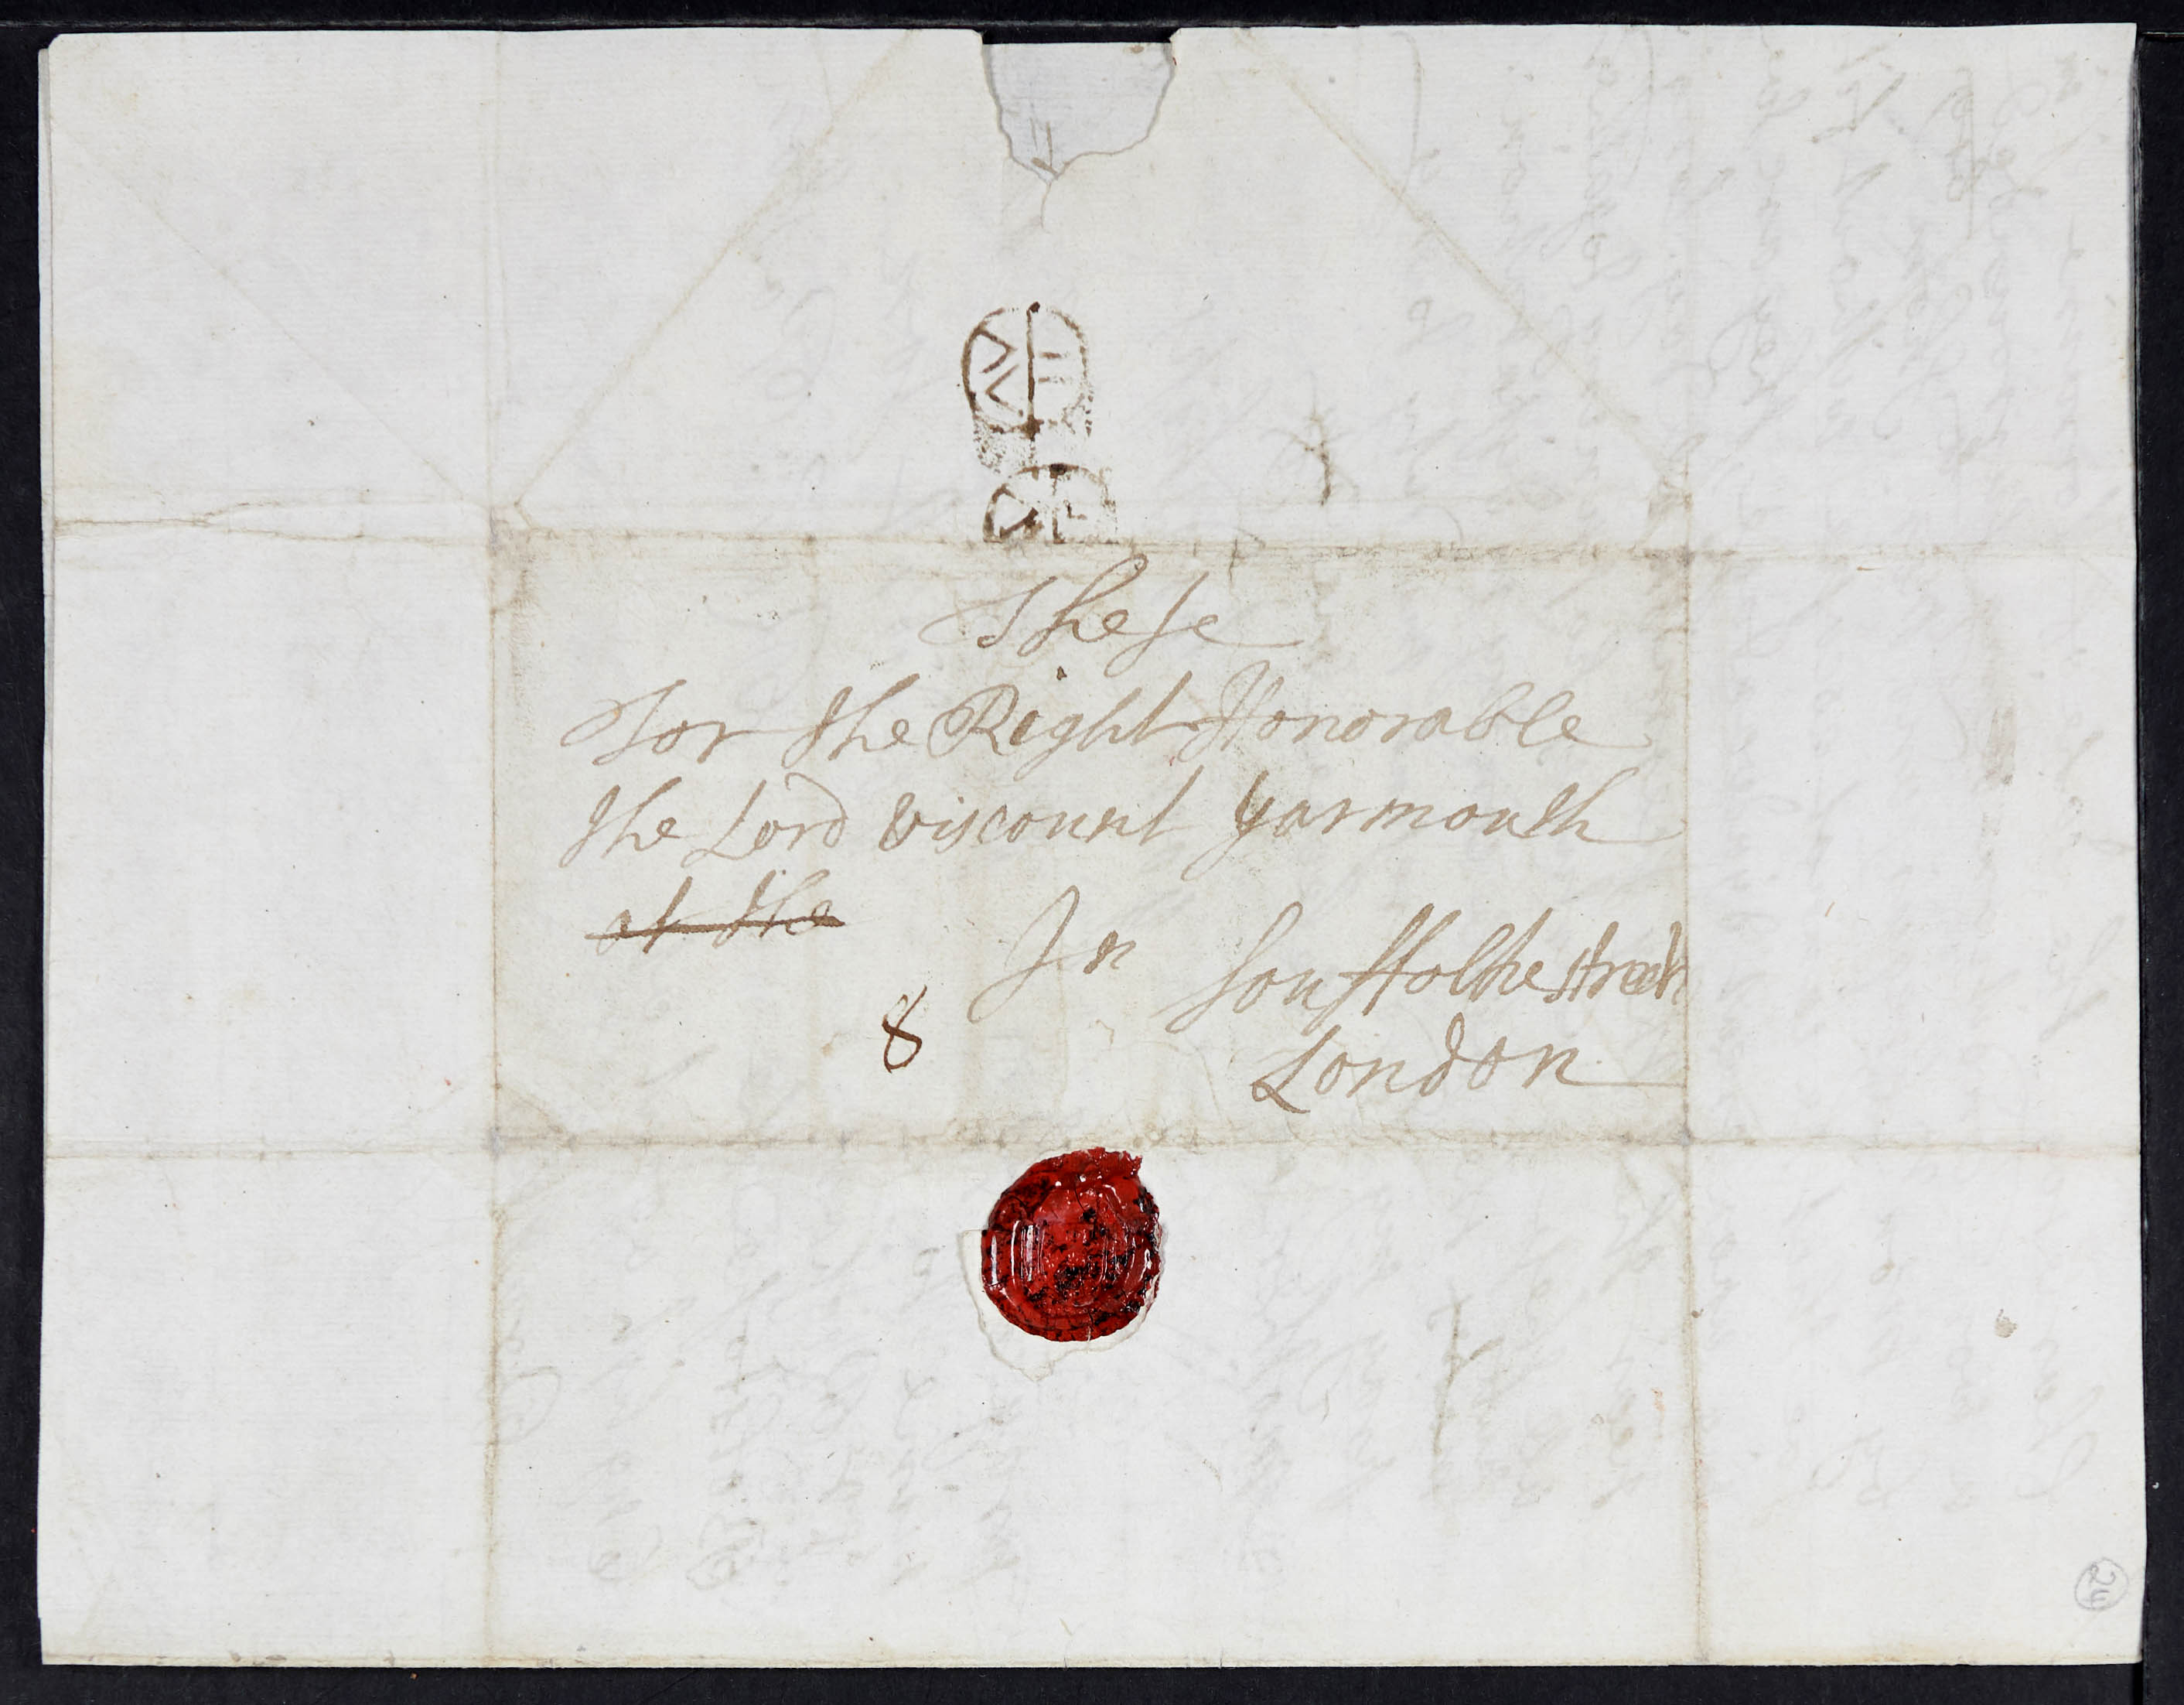 These
For the Right Honorable
the Lord viscount yarmouth
at the
In Souffolke street
8
London
24